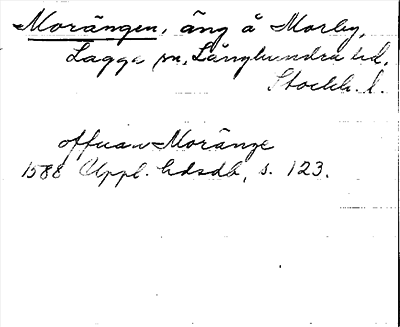 Morängen, äng å Morby,
Lagga sn, Långhundra hd,
Stockh. l.
offuan Moränge
1588 Uppl. hdsdb, s. 123.